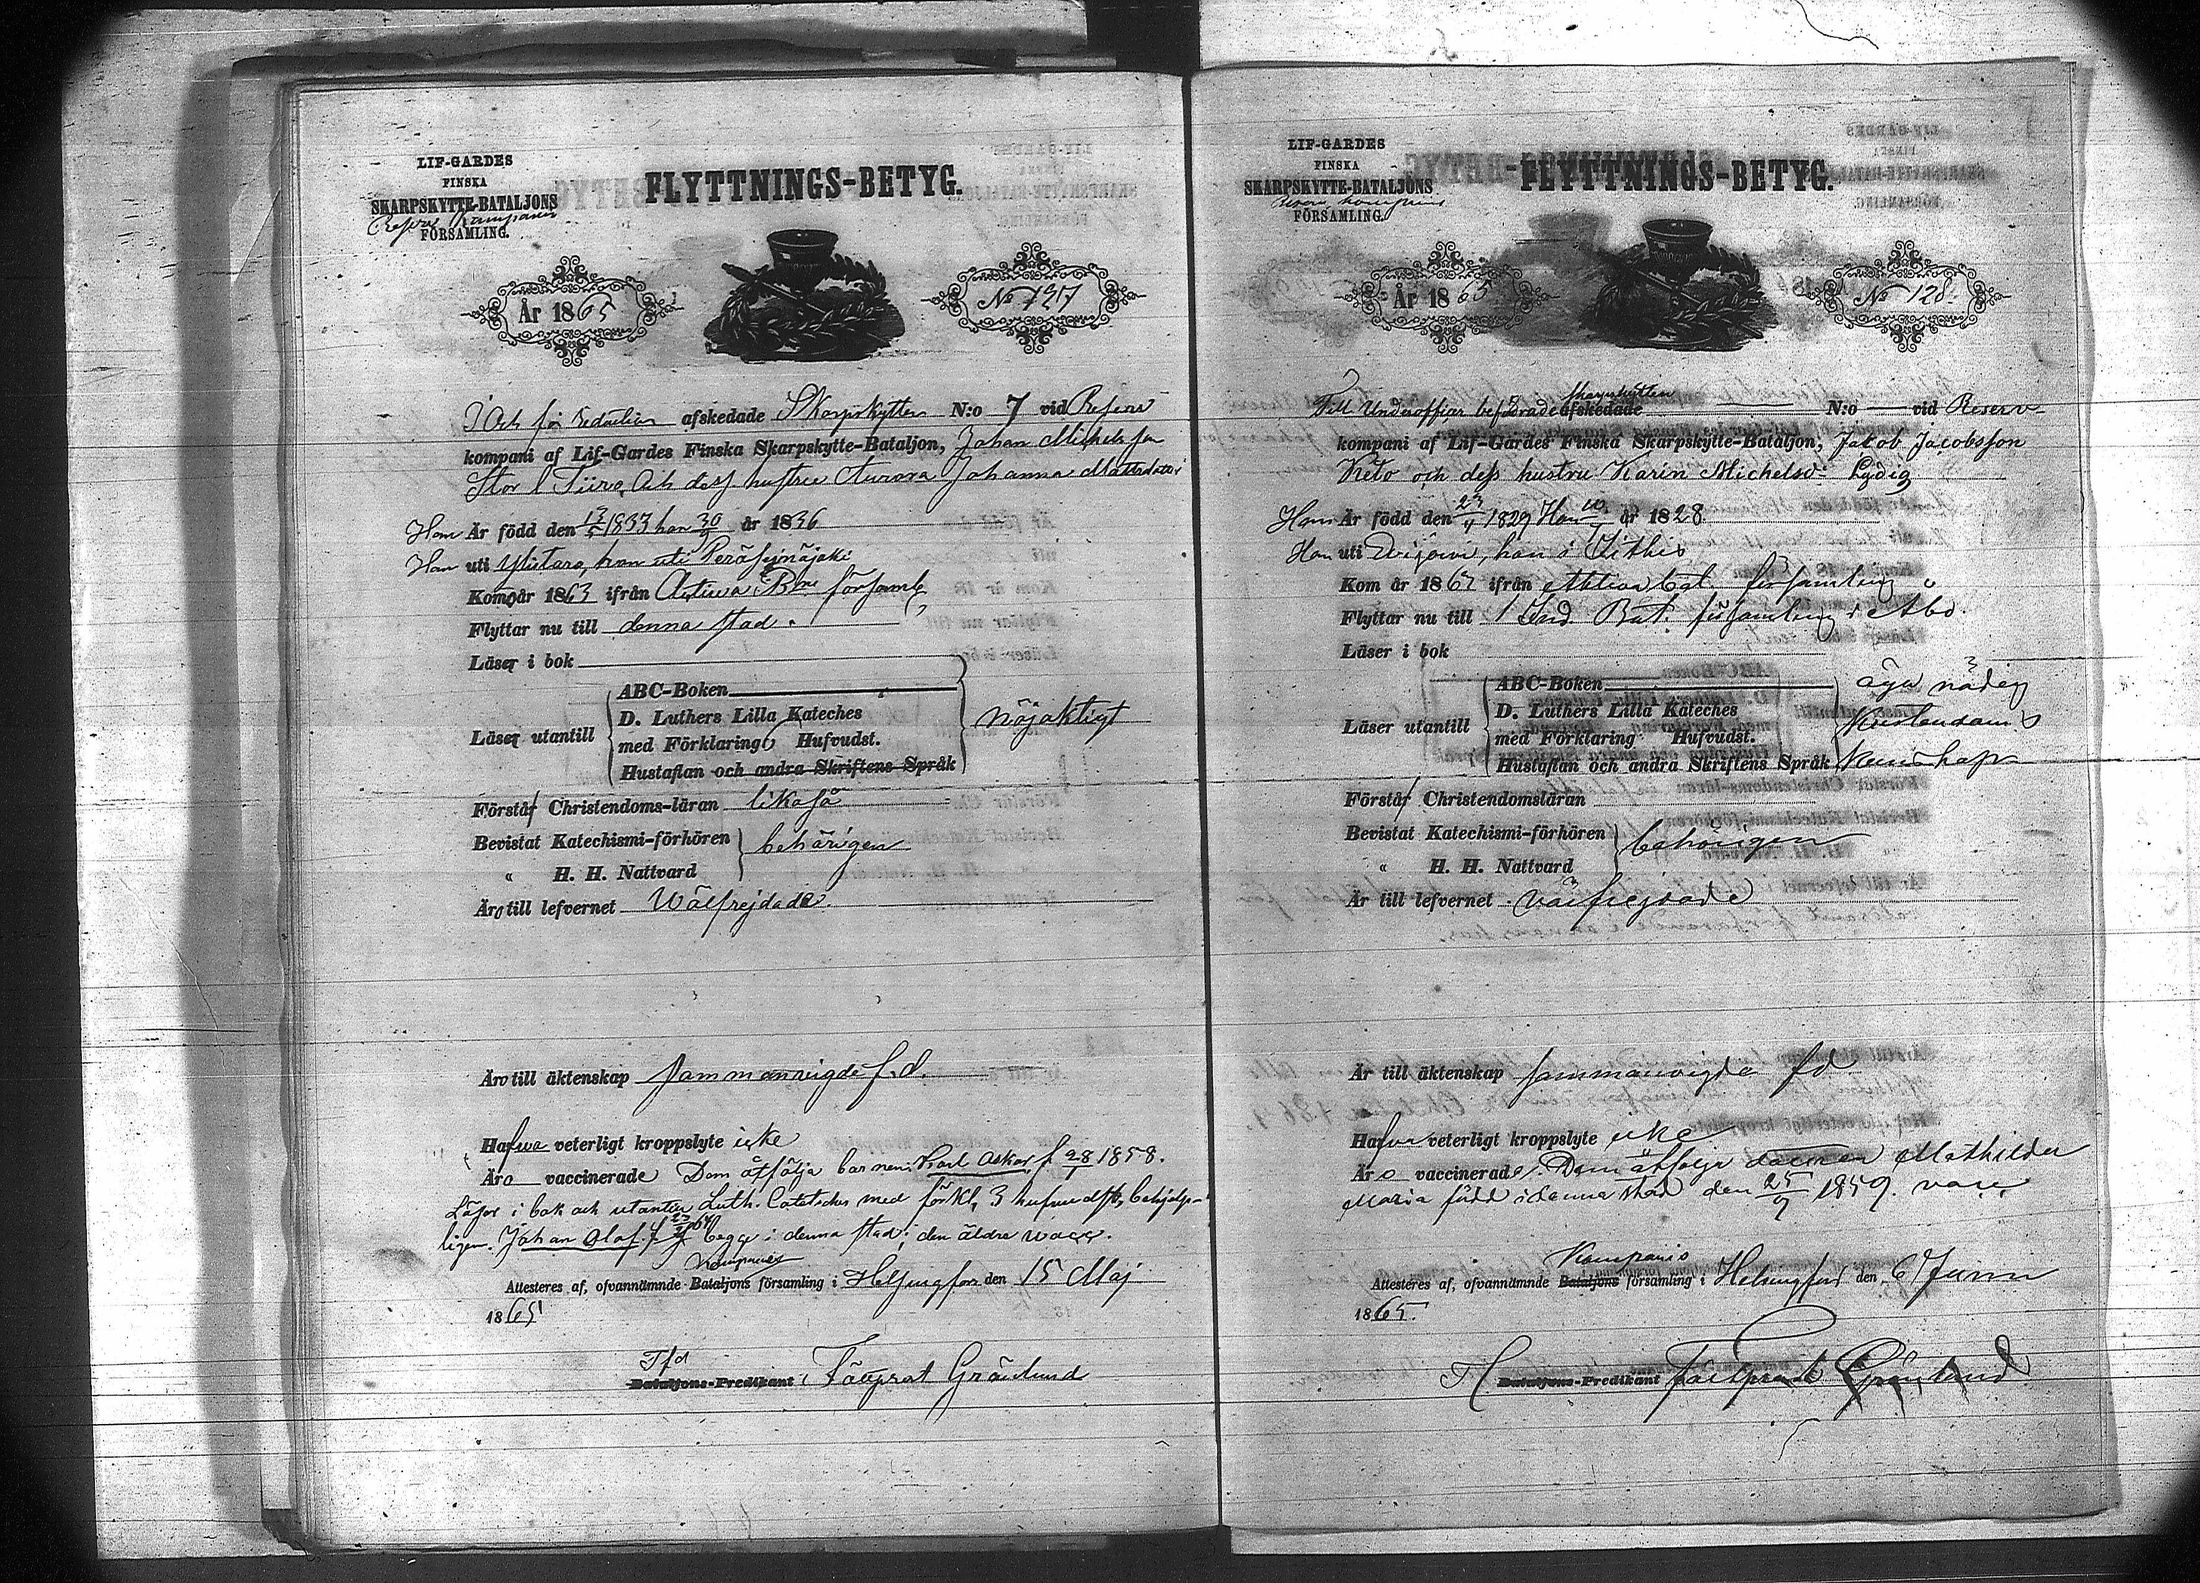 LIF-GARDES
FINSKA
SKARPSKYTTE-BATALJONS
Reserv Kompanis
FÖRSAMLING.
FLYTTNINGS-BETYG.
År 1865
No 127
afskedade Skarpskytten N:o 7 vid Reserv
kompani af Lif-Gardes Finska Skarpskytte-Bataljon, Johan Michelsson
Stor och dess hustru Aurora Johanna Mattsdotter
Han Är född den 13/5 1833 hon 30/9 år 1836
Han uti Ylistaro, hon uti Peräseinäjoki
Komo år 1863 ifrån församl
Flyttar nu till denna stad.
Läser i bok
ABC-Boken
D. Luthers Lilla Kateches
Läser utantill
med Förklaring, Hufvudst.
nöjaktigt
Hustaflan och andra Skriftens Språk
Förstår Christendoms-läran likaså
Bevistat Katechismi-förhören
behörigen
“ H. H. Nattvard
Äro till lefvernet Wälfrejdade.
Äro till äktenskap sammanvigde f.d.
Hafwa veterligt kroppslyte icke
Äro vaccinerade Dem åtfölja barnen: Karl Oskar f 28/1 1858.
Läser i bok och utantill Luth. Cateches med förkl, 3 hufvudst, behjelp-
ligen. Johan Olof f begge i denna stad; den äldre vacc.
Kompanis
Attesteres af, ofvannämnde Bataljons församling i Helsingfors den 15 Maj
1865
Tfd
Bataljons-Predikant Grönlund
LIF-GARDES
FINSKA
SKARPSKYTTE-BATALJONS
Reserv Kompanis
FÖRSAMLING.
FLYTTNINGS-BETYG.
År 1865
No 128.
skarpskytten
Till Underofficer befordrade afskedade N:o vid Reserv
kompani af Lif-Gardes Finska Skarpskytte-Bataljon, Jakob Jacobsson
Keto och dess hustru Karin Michelsd: Lydig
Han Är född den 23/4 1829 Hon år 1828
Han uti hon i
Kom år 1863 ifrån Aktiva Bat. församling
Flyttar nu till 1 Ind. Bat. församling i Åbo.
Läser i bok
ABC-Boken
äga nödig
D. Luthers Lilla Kateches
Läser utantill
Kristendoms
med Förklaring Hufvudst.
Hustaflan och andra Skriftens Språk
Kunskap
Förstår Christendomsläran
Bevistat Katechismi-förhören
behörigen
“ H. H. Nattvard
Är till lefvernet välfrejdade
Är till äktenskap sammanvigda fd
Hafva veterligt kroppslyte icke
Äro vaccinerade, Dem åtföljer dottren Mathilda
Maria född i denna stad den 25/9 1859. vacc.
Kompanis
Attesteres af, ofvannämnde Bataljons församling i Helsingfors den 6 Junii
1865.
Bataljons-Predikant Grönlund